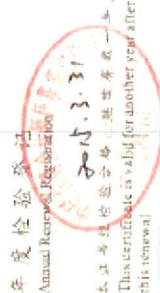 年度检验登记
Annual Renewal Registration
2015.3.31
本证书经检验合格,继续有效一年
This certificate is valid for another year after
this renewal